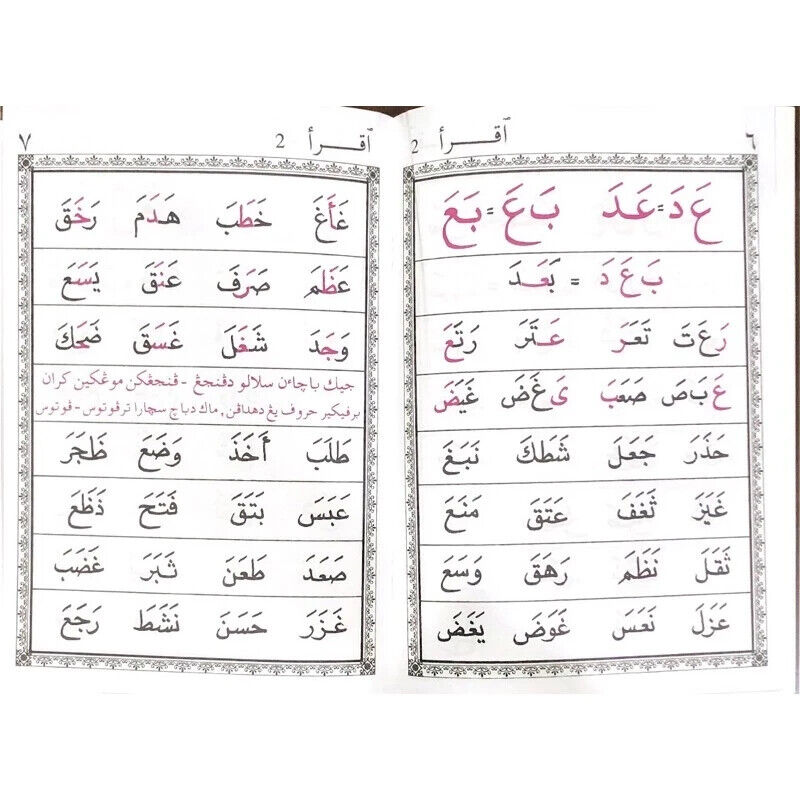 ٦ اقرأ 2
عَ دَ = عَدَ بَ عَ = بَعَ
بَ عَ دَ = بَعَدَ
رَعَتَ تَعَرَ عَتَرَ رَتَعَ
عَ بَاصَ صَعَبَ يَ غَضَ غَيَضَ
حَذَرَ جَعَلَ شَطَكَ نَبَغَ
غَيَزَ ثَغَفَ عَتَقَ مَنَعَ
ثَقَلَ نَظَمَ رَهَقَ وَسَعَ
عَزَلَ نَعَسَ غَوَضَ يَغَضَ
٧ اقرأ 2
غَأَغَ خَطَبَ هَدَمَ رَخَقَ
عَظَمَ صَرَفَ عَنَقَ يَسَعَ
وَجَدَ شَغَلَ غَسَقَ ضَحَكَ
جيك باچاءن سلالو دڤنجڠ - ڤنجڠكن موڠكين كران
برفيكير حروف يڠ دهداڤن, ماك دباچ سچارا ترڤوتوس - ڤوتوس
طَلَبَ أَخَذَ وَضَعَ ظَجَرَ
عَبَسَ بَتَقَ فَتَحَ ذَظَعَ
صَعَدَ طَعَنَ ثَبَرَ غَضَبَ
غَزَرَ حَسَنَ نَشَطَ رَجَعَ